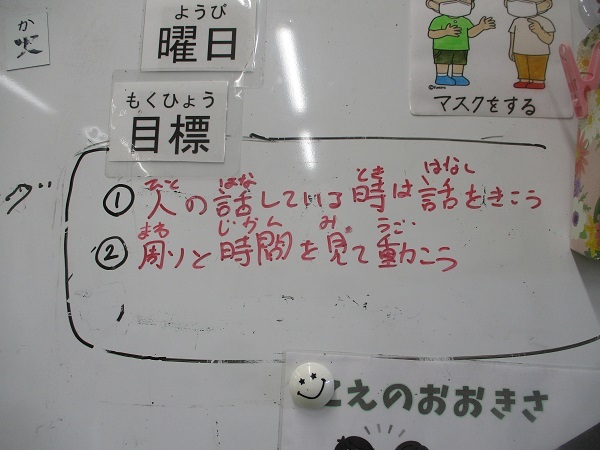 か
火
ようび
曜日
マスクをする
もくひょう
目標
① 人の話している時は話をきこう
ひと はな とき はなし
② 周りと時間を見て動こう
まわ じかん み うご
こえのおおきさ